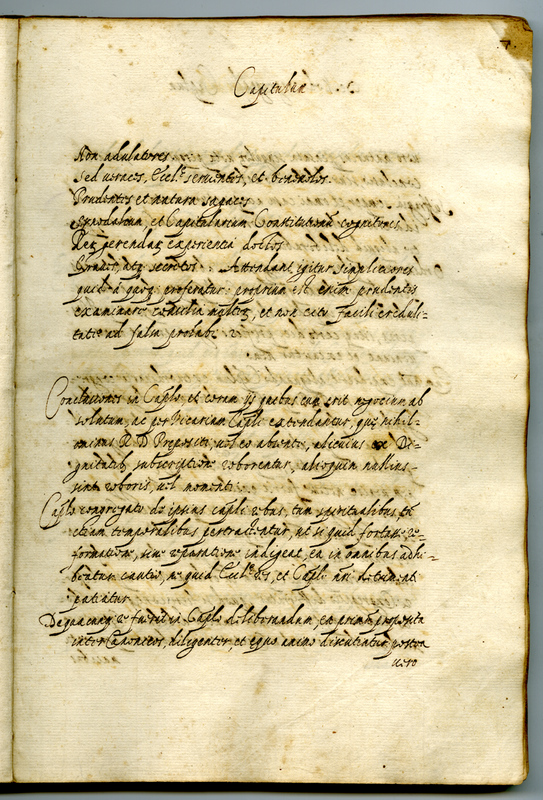 Capitulum
7
Non adulatores
Sed veraces, Eccl.e servientes, et benevolos.
Prudentes et natura sagaces
Synodalium et Capitularium Constitutionu cognitores
Req gerendaq experientia doctos
Graves, atq secretos. Attendant igitur simpliciores
quid a quoq proferatur: proprium est enim prudentis
examinare consilia multoq, et non cito facili creduli-
tate ad falsa prolabi
Conclusiones in Caplo et coram ijs quibus cum erit negocium ab
solutum, ac per Vicarium Capli extendantur, quae nihil-
ominus R. D. Prepositi, vel eo absente, alicuius ex Di-
gnitatib, subscriptione roborentur, alioquin nullius
sint roboris, vel momenti
Caplo congregato de ipsius capli rebus, tam spiritualibus, quam
etiam temporalibus pertractentur, ut si quid fortasse re-
formatione, sive reparatione indigeat, ea in omnibus adhi-
beatur cautio, ne quid Eccl.e res, et Caplo nri detrimenti
patiatur
De quacunq re fuerit in Caplo deliberandum, ea primum proposita
inter Canonicos, diligenter, et equo animo discutiatur, postea
vero